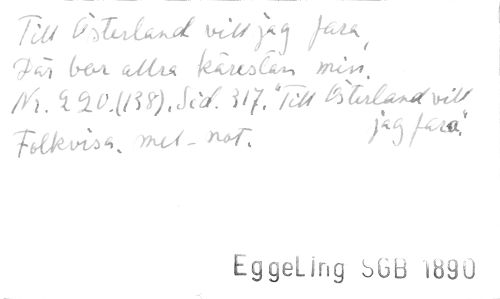 Till Österland vill jag fara,
Där bor allra kärestan min.
Nr. 220.(138). Sid. 317. "Till Österland vill
jag fara".
Folkvisa. mel-not.
EggeLing SGB 1890